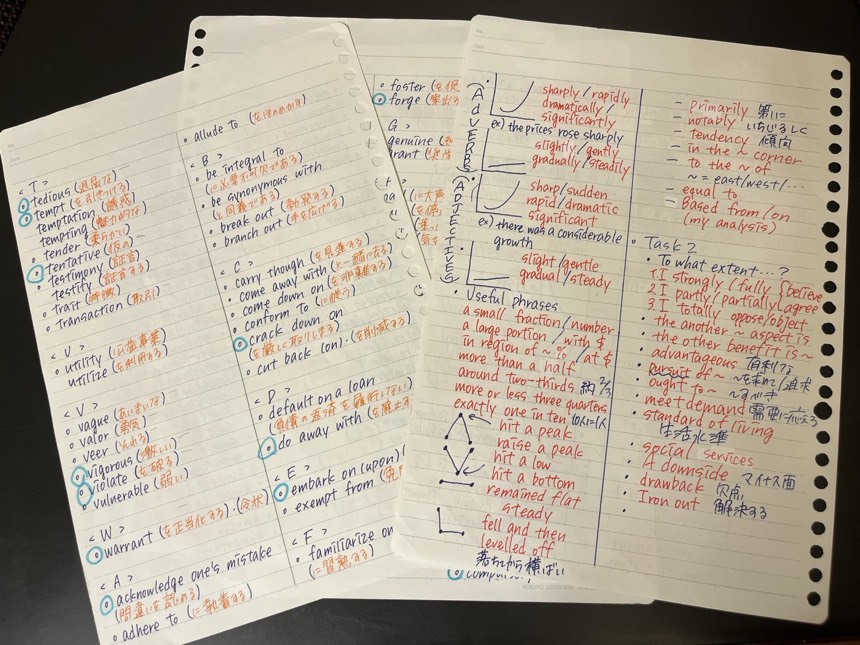 <T>
tedious (退屈な)
tempt (を引きつける)
temptation (誘惑)
tempting (魅力的な)
tender (柔らかい)
tentative (仮の)
testimony (証言)
testify (証言する)
trait (特徴)
transaction (取引)
<U>
utility (公益事業)
utilize (を利用する)
<V>
vague (あいまいな)
valor (勇気)
veer (それる)
vigorous (激しい)
violate (を破る)
vulnerable (弱い)
<W>
warrant (を正当化する)・(令状)
<A>
acknowledge one's mistake
(間違いを認める)
adhere to (に執着する)
allude to (をほのめかす)
<B>
be integral to
(に必要不可欠である)
be synonymous with
(と同義である)
break out (勃発する)
branch out (手を広げる)
<C>
carry though (を見・する)
come away with
come down on (を非難する)
conform to (に従う)
crack down on
(を厳しく取りしまる)
cut back (on)・(を削減する)
<D>
default on a loan
(負債の返済を履行しない)
do away with (を廃止す
<E>
embark on (upon) (
exempt from (免
<F>
familiarize on
(に習熟する)
foster (を促
forge
G
genuine
rant
(に大声
(ADVERBS)
sharply / rapidly
dramatically /
significantly
ex) the prices rose sharply
slightly / gently
gradually / steadily
(ADJECTIVES)
sharp / sudden
rapid / dramatic
significant
ex) there was a considerable
growth
slight / gentle
gradual / steady
Useful phrases
a small fraction / number
a large portion / with $
in region of ~ % / at $
more than a half
around two-thirds 約 2/3
more or less three quarters
exactly one in ten 10人に1人
hit a peak
raise a peak
hit a low
hit a bottom
remained flat
steady
fell and then
levelled off
落ちてから横ばい
- primarily 第一に
- notably いちじるしく
- tendency 傾向
- in the ~ corner
- to the ~ of
~ = east/west/...
- equal to
- Based from / on
(my analysis)
Task 2
To what extent...?
1. I strongly / fully believe
2. I partly / partially agree
3. I totally oppose/object
the another ~ aspect is
the other benefit is ~
advantageous 有利な
pursuit of ~ ~を求めて/追求
ought to ~ ~すべき
meet demand 需要に応える
standard of living
生活水準
social services
A downside マイナス面
drawback 欠点
Iron out 解決する